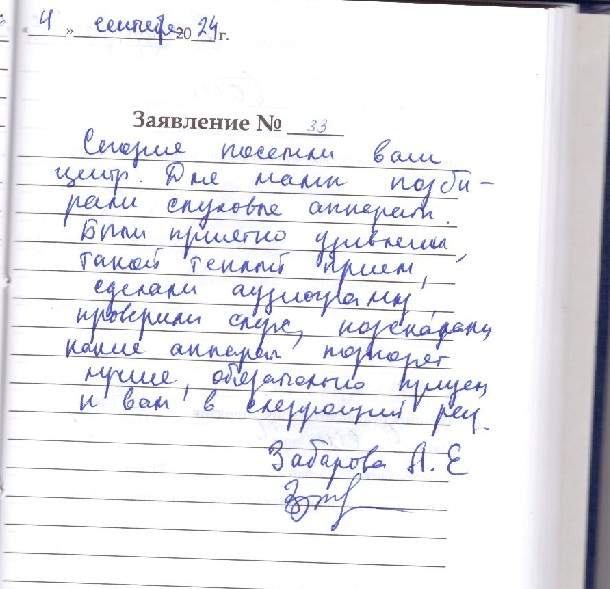 « 4 » сентября 2024 г.
Заявление № 33
Сегодня посетили ваш
центр. Для мамы подби-
рали слуховые аппараты.
Были приятно удивлены,
такой теплый прием,
сделали аудиограмму
проверили слух, подсказали
какие аппараты подходят
лучше, обязательно придем
к вам в следующий раз.
Забарова А. Е